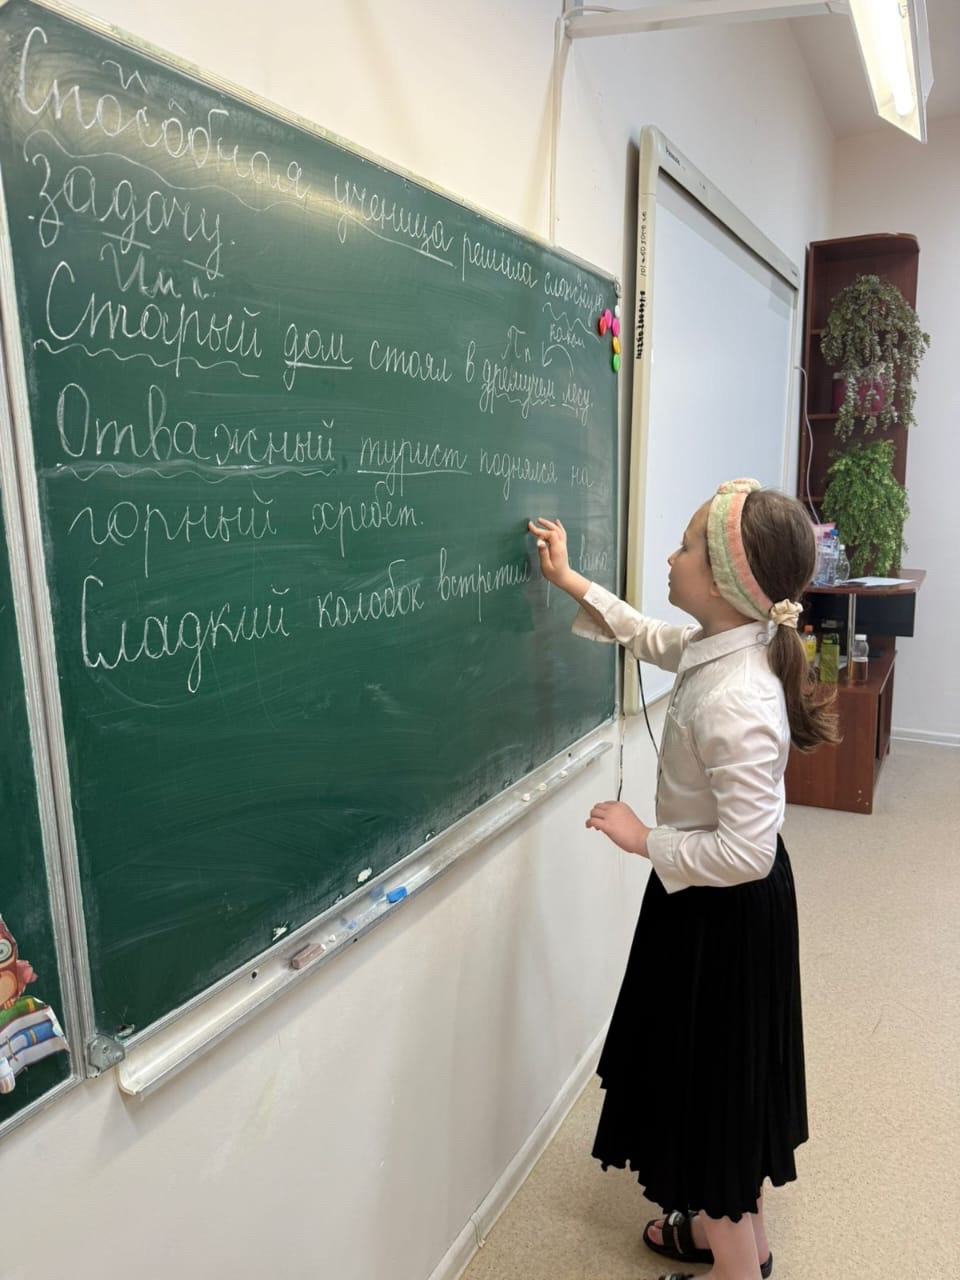 Способная ученица решила сложную
задачу.
И.п.
каком
П.п.
Старый дом стоял в дремучем лесу.
Отважный турист поднялся на
горный хребет.
Сладкий колобок встретил волка